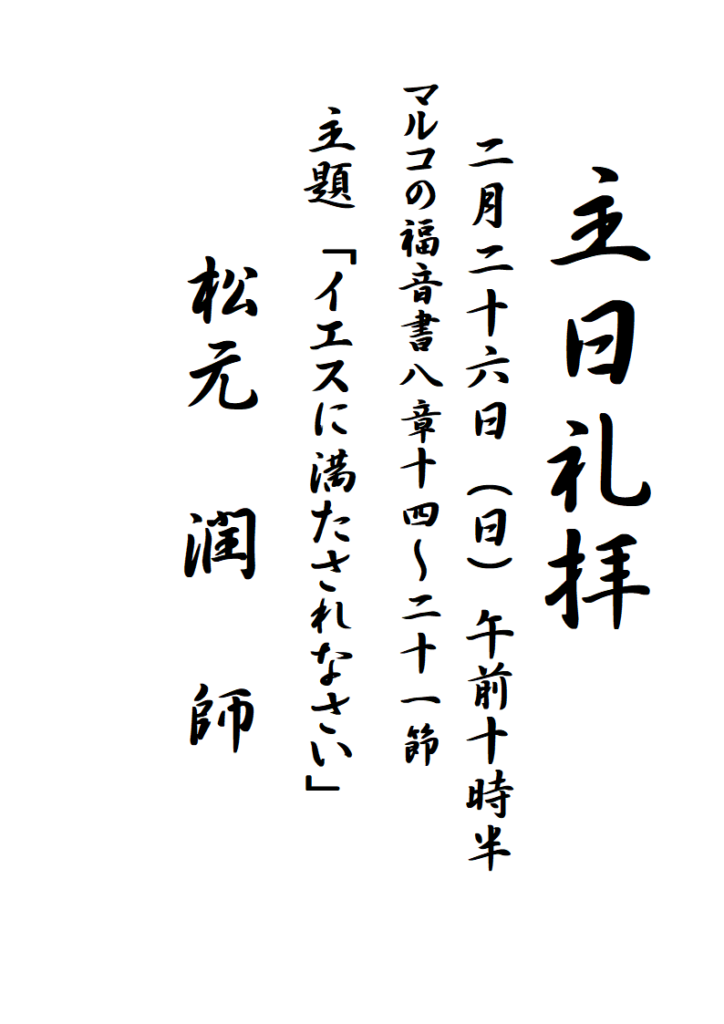 主日礼拝
二月二十六日（日）午前十時半
マルコの福音書八章十四～二十一節
主題「イエスに満たされなさい」
松元 潤 師